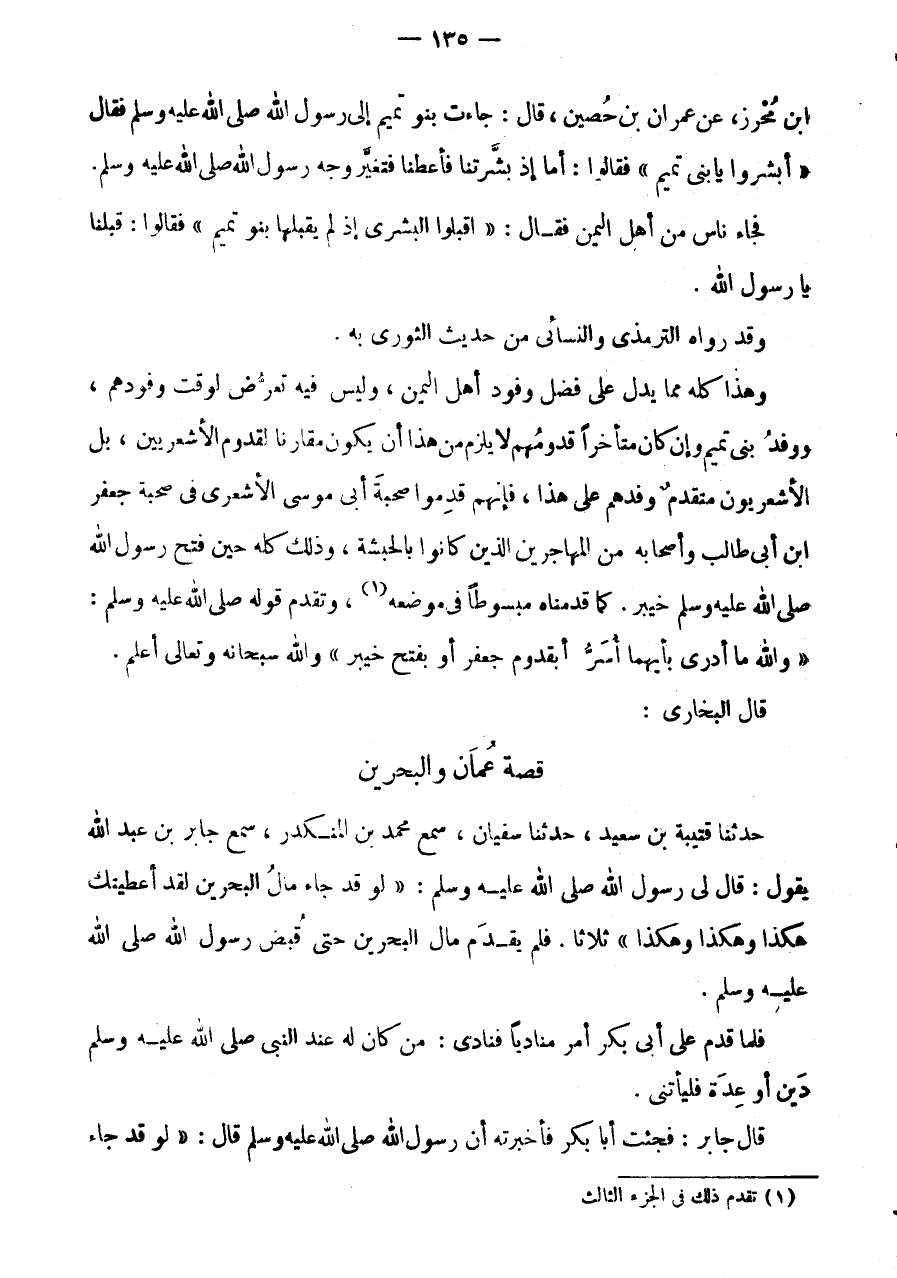 — ١٣٥ —
ابن مُحْرز، عن عمران بن حُصين، قال : جاءت بنو تميم إلى رسول الله صلى الله عليه وسلم فقال
« أبشروا يابنى تميم » فقالوا : أما إذ بشَّرتنا فأعطنا فتغيَّر وجه رسول الله صلى الله عليه وسلم.
فجاء ناس من أهل اليمن فقـال : « اقبلوا البشرى إذ لم يقبلها بنو تميم » فقالوا : قبلنا
يا رسول الله .
وقد رواه الترمذى والنسأئى من حديث الثورى به .
وهذا كله مما يدل على فضل وفود أهل اليمن ، وليس فيه تعرُّض لوقت وفودهم ،
ووفدُ بنى تميم وإن كان متأخراً قدومُهم لا يلزم من هذا أن يكون مقارنا لقدوم الأشعريين ، بل
الأشعريون متقدمٌ وفدهم على هذا ، فإنهم قدِموا صحبةَ أبى موسى الأشعرى فى صحبة جعفر
ابن أبى طالب وأصحابه من المهاجرين الذين كانوا بالحبشة ، وذلك كله حين فتح رسول الله
صلى الله عليه وسلم خيبر . كما قدمناه مبسوطاً فى موضعه(١) ، وتقدم قوله صلى الله عليه وسلم :
« والله ما أدرى بأيهما أُسَرُّ أبقدوم جعفر أو بفتح خيبر » والله سبحانه وتعالى أعلم .
قال البخارى :
قصة عُمَان والبحرين
حدثنا قتيبة بن سعيد ، حدثنا سفيان ، سمع محمد بن المنـكدر ، سمع جابر بن عبد الله
يقول : قال لى رسول الله صلى الله عليـه وسلم : « لو قد جاء مالُ البحرين لقد أعطيتك
هكذا وهكذا وهكذا » ثلاثا . فلم يقـدَم مال البحرين حتى قُبض رسول الله صلى الله
عليـه وسلم .
فلما قدم على أبى بكر أمر منادياً فنادى : من كان له عند النبى صلى الله عليـه وسلم
دَين أو عِدَة فليأتنى .
قال جابر : فجئت أبا بكر فأخبرته أن رسول الله صلى الله عليه وسلم قال : « لو قد جاء
(١) تقدم ذلك فى الجزء الثالث